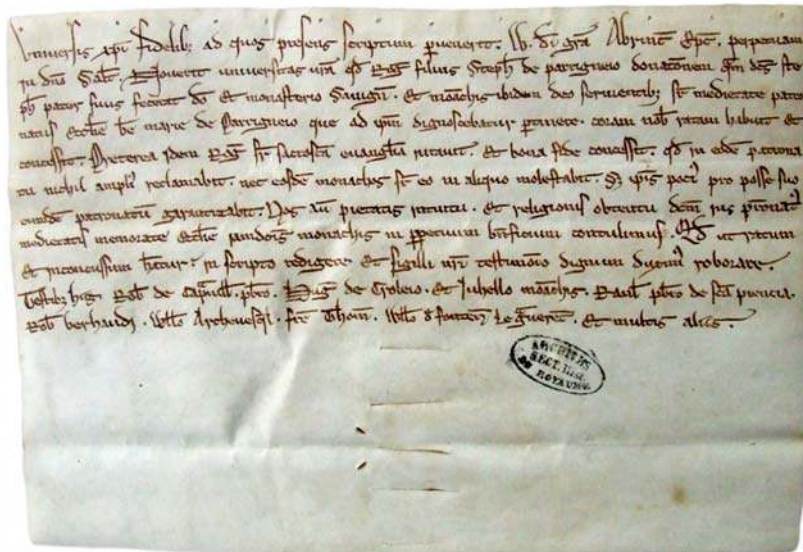 Universis xpi fidelib; ad quos presens scriptum pervenerit. W. di gra Abrinc Epc. perpetuam
in dno Salt. Noverit universitas vra qd Rog filius Steph de partigneio donationem qm dcs ste
ph pater suus fecerat do Et monasterio Savign. Et monachis ibidem deo servientib; sr medietate patro
natus Ecclie be marie de Partigneio que ad ipm dignoscebatur ptinere. coram nob ratam habuit Et
concessit. Preterea idem Rog sr sacrosca evanglia iuravit. Et bona fide concessit. qd in eode patrona
tu nichil ampli reclamabit. nec eosde monachos sr eo in aliquo molestabit. S; ipis poci pro posse suo
eunde patronatu garantizabit. Nos au pietatis intuitu. Et religionis obtentu dcm ius pronat
medietatis memorate Ecclie pandcis monachis in ppetuum bnficium contulimus. Qd ut ratum
Et inconcussum hatur. in scripto redigere Et sigilli nri testimonio dignum duxim roborare.
Testib; his Rob de Capll. pbro. Hug de Croleio. Et Juhello monachis. Raul pbro de sca piencia.
Rob berhaudi. Willo Archevesqi. fre Thom. Willo d fonten le Guerec. Et multis aliis.
ARCHIVES
SECT. HIST.
DU ROYAUME